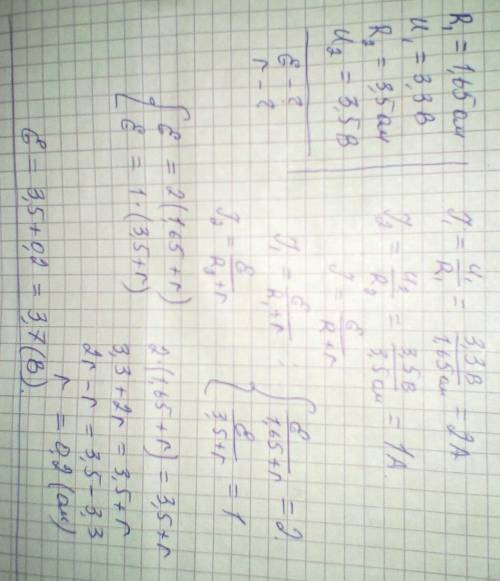 R₁ = 1,65 ом
U₁ = 3,3 В
R₂ = 3,5 ом
U₂ = 3,5 В
ℰ - ?
r - ?
J₁ = U₁/R₁ = 3,3 В/1,65 ом = 2 А
J₂ = U₂/R₂ = 3,5 В/3,5 ом = 1 А.
J = ℰ/(R+r)
J₁ = ℰ/(R₁+r),
J₂ = ℰ/(R₂+r)
{ ℰ/(1,65+r) = 2.
ℰ/(3,5+r) = 1
{ ℰ = 2(1,65 + r)
ℰ = 1·(3,5+r)
2·(1,65+r) = 3,5+r
3,3 + 2r = 3,5+r
2r - r = 3,5 - 3,3
r = 0,2 (ом)
ℰ = 3,5 + 0,2 = 3,7 (В).